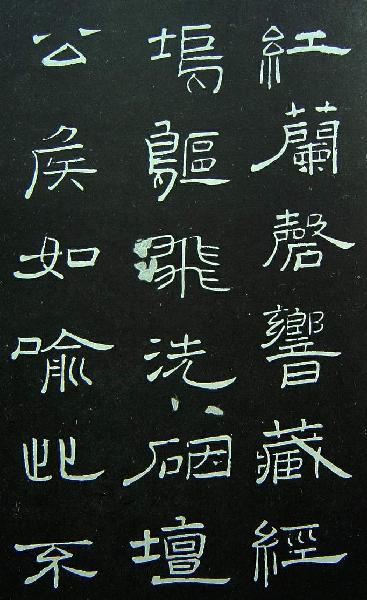 紅蘭磬響藏經
塢鷗飛洗壇
公侯如喻此不